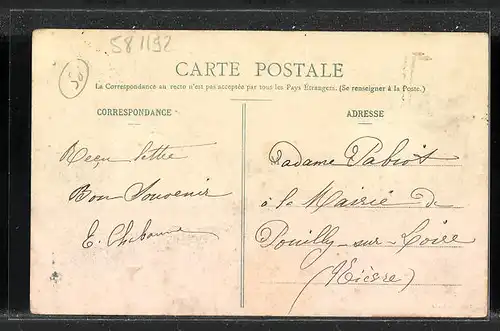 58 1192
58
CARTE POSTALE
La Correspondance au recto n'est pas acceptée par tous les Pays Étrangers. (Se renseigner à la Poste.)
CORRESPONDANCE
ADRESSE
Reçu lettre
Bon Souvenir
E. Chabanne
Madame Pabiot
à la Mairie de
Pouilly-sur-Loire
(Nièvre)